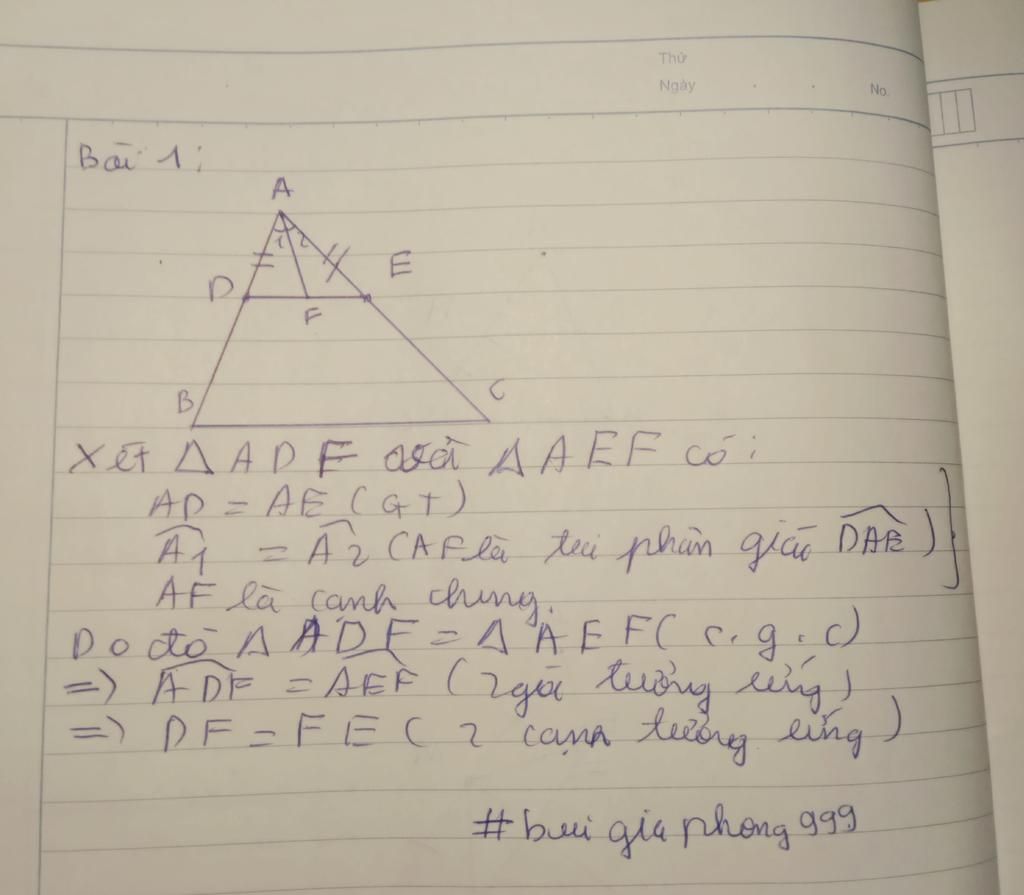 Thứ
Ngày . . No.
Bài 1:
A
1 2
D E
F
B C
Xét Δ ADF với Δ AEF có:
AD = AE (GT)
Â1 = Â2 (AF là tia phân giác DAE)
AF là cạnh chung.
Do đó Δ ADF = Δ AEF (c.g.c)
=> ADF = AEF (2 góc tưởng ứng)
=> DF = FE (2 cạnh tưởng ứng)
#bui gia phong 999